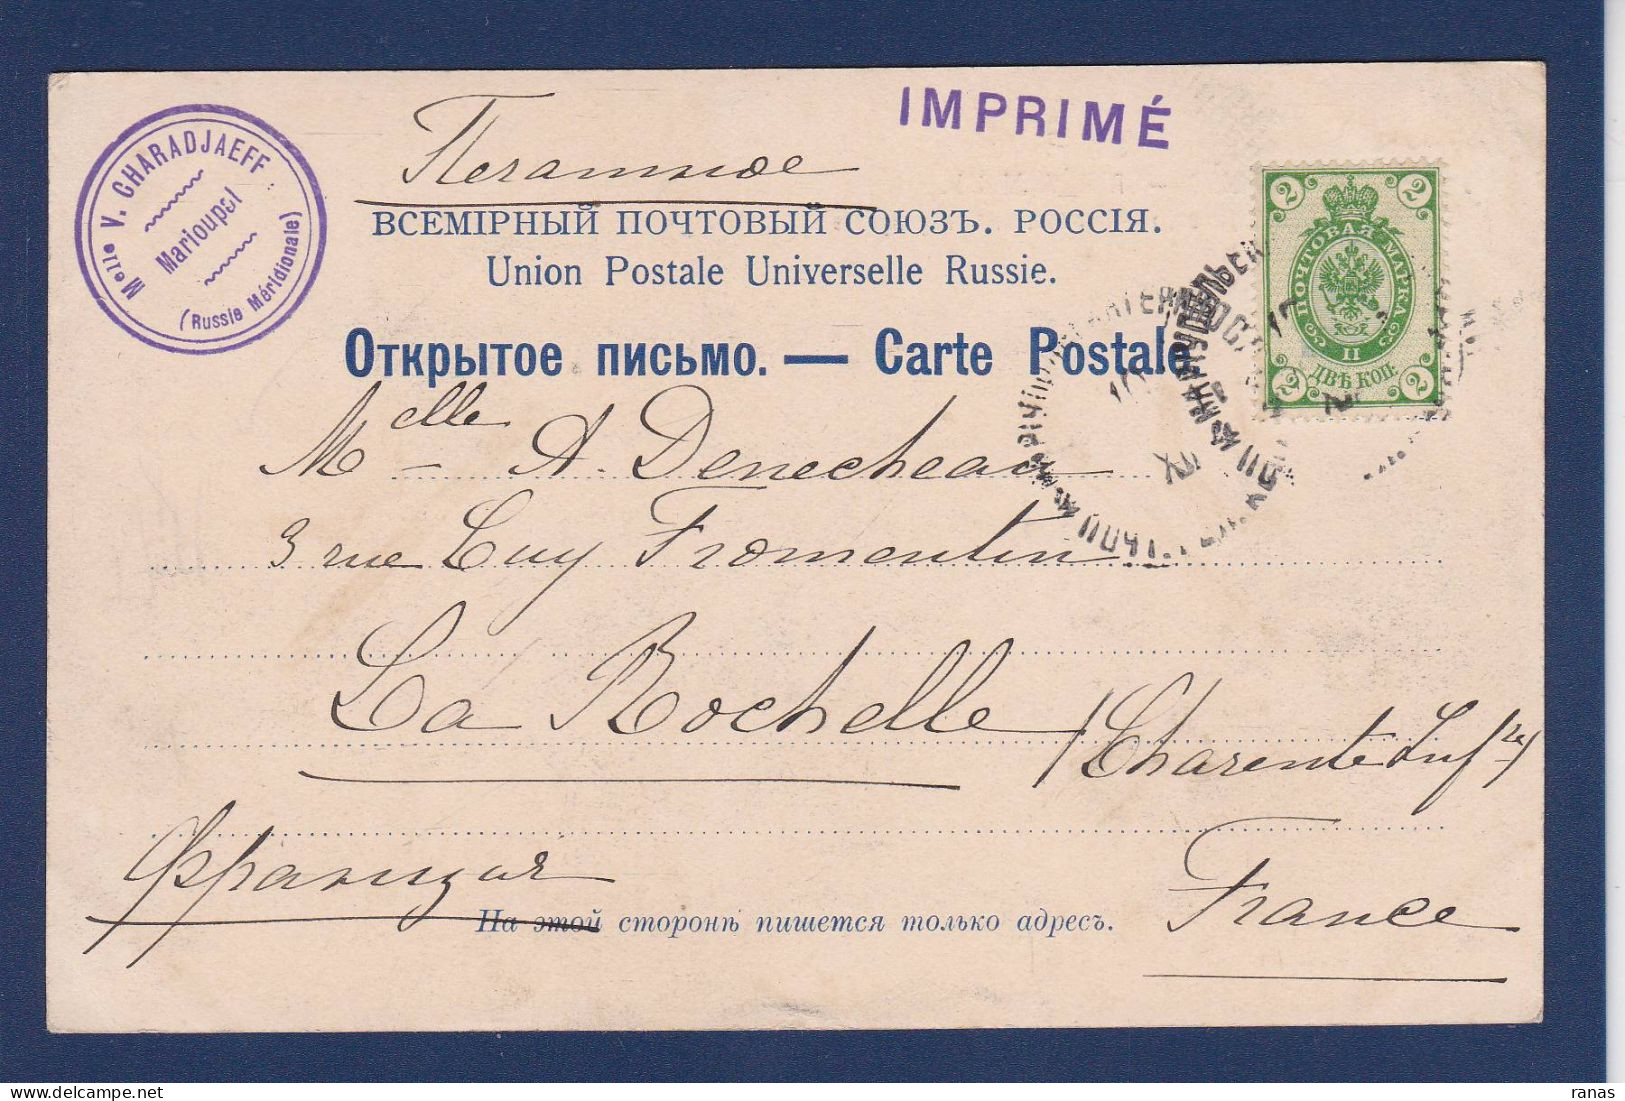 IMPRIMÉ
Melle V. CHARADJAEFF
Marioupol
(Russie Méridionale)
Печатное
ВСЕМІРНЫЙ ПОЧТОВЫЙ СОЮЗЪ. РОССІЯ.
Union Postale Universelle Russie.
Открытое письмо. — Carte Postale
2 2
ПОЧТОВАЯ МАРКА
II
ДВѢ КОП.
2 2
Melle A. Denecheau
3 rue Guy Fromentin
La Rochelle (Charente Infre)
Франция
France
На этой сторонѣ пишется только адресъ.
ranas